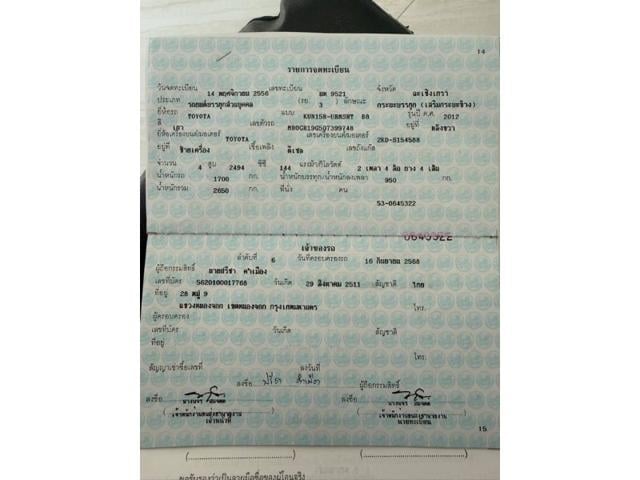 14
รายการจดทะเบียน
วันจดทะเบียน 14 พฤศจิกายน 2556 เลขทะเบียน 9521 จังหวัด ฉะเชิงเทรา
ประเภท รถยนต์บรรทุกส่วนบุคคล (รย. 3 ) ลักษณะ กระบะบรรทุก (เสริมกระบะข้าง)
ยี่ห้อรถ TOYOTA แบบ KUN15R-URMSHT B8 รุ่นปี ค.ศ. 2012
สี เทา เลขตัวรถ MR0GR19G507399748 อยู่ที่ หลังขวา
ยี่ห้อเครื่องยนต์/มอเตอร์ TOYOTA เลขเครื่องยนต์/มอเตอร์ 2KD-S154588
อยู่ที่ ซ้ายเครื่อง เชื้อเพลิง ดีเซล เลขถังแก๊ส
จำนวน 4 สูบ 2494 ซีซี 144 แรงม้า/กิโลวัตต์ 2 เพลา 4 ล้อ ยาง 4 เส้น
น้ำหนักรถ 1700 กก. น้ำหนักบรรทุก/น้ำหนักลงเพลา 950 กก.
น้ำหนักรวม 2650 กก. ที่นั่ง คน
53-0645322
0645322
เจ้าของรถ
ลำดับที่ 6 วันที่ครอบครองรถ 16 กันยายน 2568
ผู้ถือกรรมสิทธิ์
เลขที่บัตร 5620100017768 วันเกิด 29 สิงหาคม 2511 สัญชาติ ไทย
ที่อยู่ 28 หมู่ 9
แขวงหนองจอก เขตหนองจอก กรุงเทพมหานคร โทร.
ผู้ครอบครอง
เลขที่บัตร วันเกิด สัญชาติ
ที่อยู่
โทร.
สัญญาเช่าซื้อเลขที่ ลงวันที่
ลงชื่อ ผู้ถือกรรมสิทธิ์
ลงชื่อ ลงชื่อ
เจ้าหน้าที่ นายทะเบียน
15
ขอรับรองว่าเป็นลายมือชื่อของผู้โอนจริง